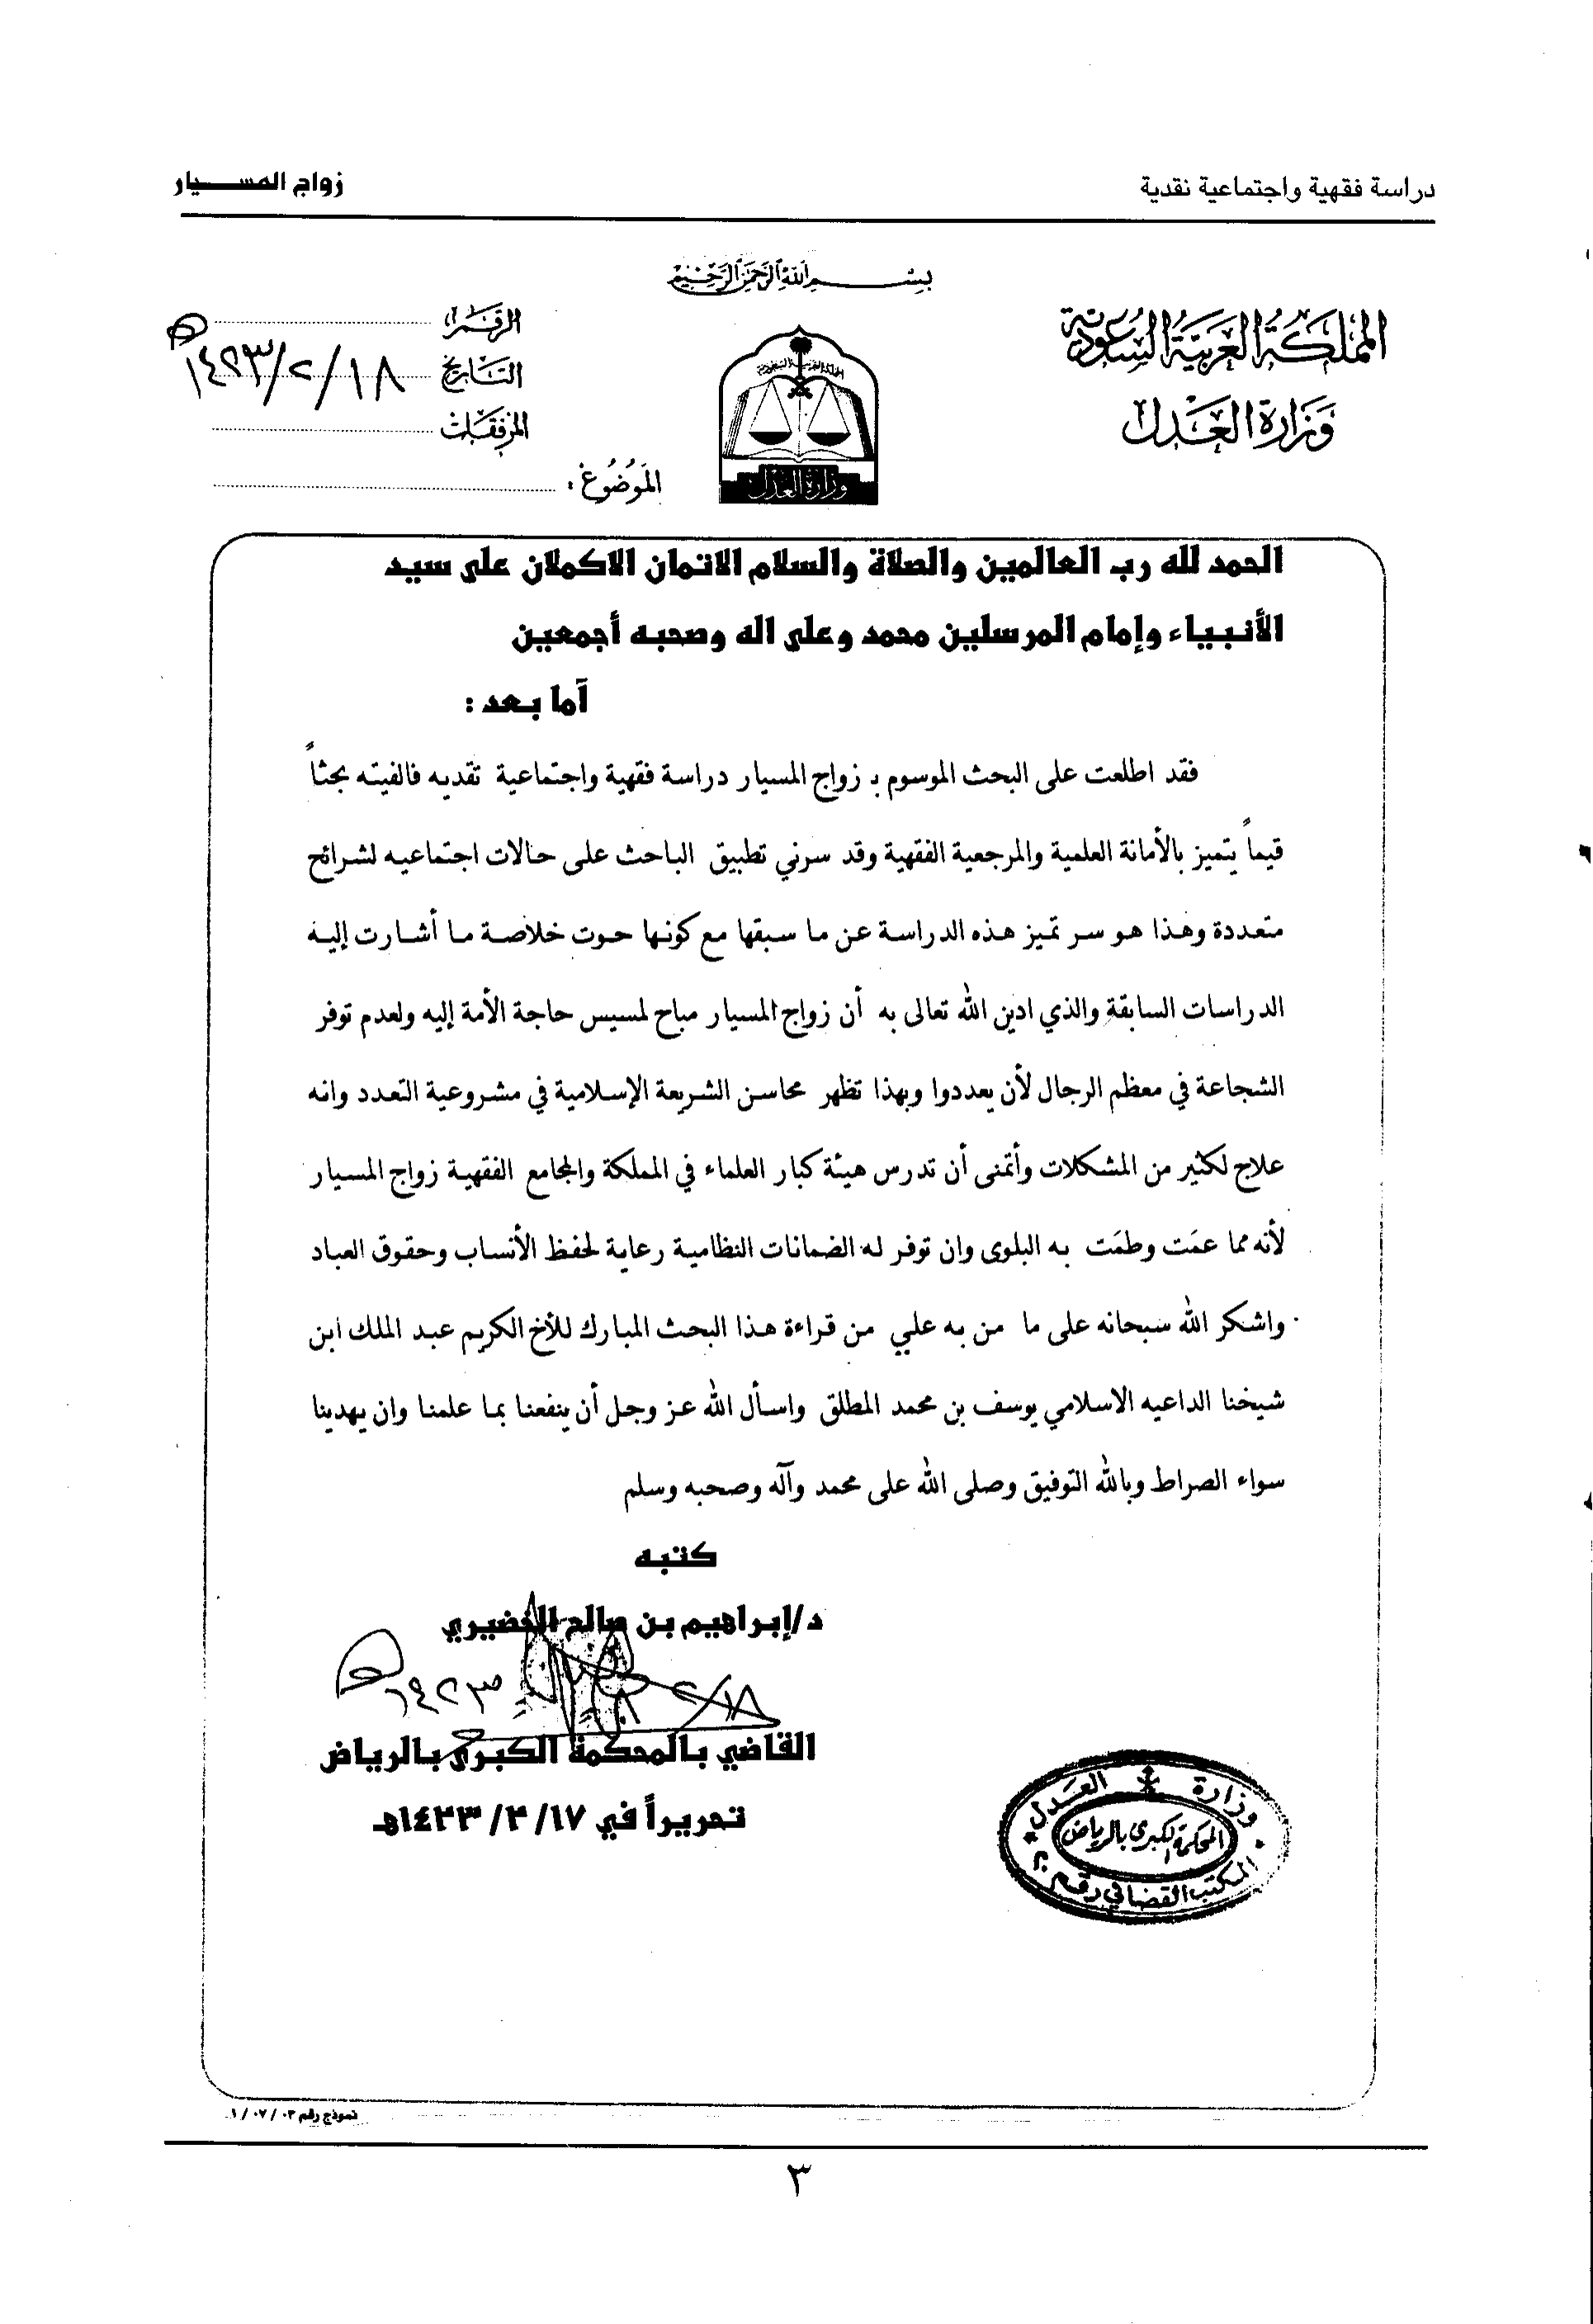 دراسة فقهية واجتماعية نقدية
زواج المسـيار
بسم الله الرحمن الرحيم
المملكة العربية السعودية
وزارة العدل
الرقم
التاريخ ١٤٢٣/٢/١٨ هـ
المرفقات
الموضوع :
المملكة العربية السعودية
وزارة العدل
الحمد لله رب العالمين والصلاة والسلام الاتمان الاكملان على سيد
الأنبياء وإمام المرسلين محمد وعلى اله وصحبه أجمعين
آما بعد :
فقد اطلعت على البحث الموسوم بـ زواج المسيار دراسة فقهية واجتماعية تقديه فالفيته بحثاً
قيماً يتميز بالأمانة العلمية والمرجعية الفقهية وقد سرني تطبيق الباحث على حالات اجتماعيه لشرائح
متعددة وهذا هو سر تميز هذه الدراسة عن ما سبقها مع كونها حوت خلاصة ما أشارت إليه
الدراسات السابقة والذي ادين الله تعالى به أن زواج المسيار مباح لمسيس حاجة الأمة إليه ولعدم توفر
الشجاعة في معظم الرجال لأن يعددوا وبهذا تظهر محاسن الشريعة الإسلامية في مشروعية التعدد وانه
علاج لكثير من المشكلات وأتمنى أن تدرس هيئة كبار العلماء في المملكة والمجامع الفقهية زواج المسيار
لأنه مما عمَت وطمَت به البلوى وان توفر له الضمانات النظامية رعاية لحفظ الأنساب وحقوق العباد
واشكر الله سبحانه على ما من به علي من قراءة هذا البحث المبارك للأخ الكريم عبد الملك ابن
شيخنا الداعيه الاسلامي يوسف بن محمد المطلق واسأل الله عز وجل أن ينفعنا بما علمنا وان يهدينا
سواء الصراط وبالله التوفيق وصلى الله على محمد وآله وصحبه وسلم
كتبه
د/إبراهيم بن صالح الخضيري
٢/١٨ ١٤٢٣ هـ
القاضي بالمحكمة الكبرى بالرياض
تحريراً في ١٧/ ٢/ ١٤٢٣هـ
وزارة العدل
المحكمة الكبرى بالرياض
المكتب القضائي رقم
نموذج رقم ٠٣ / ٠٧ / ١
٣